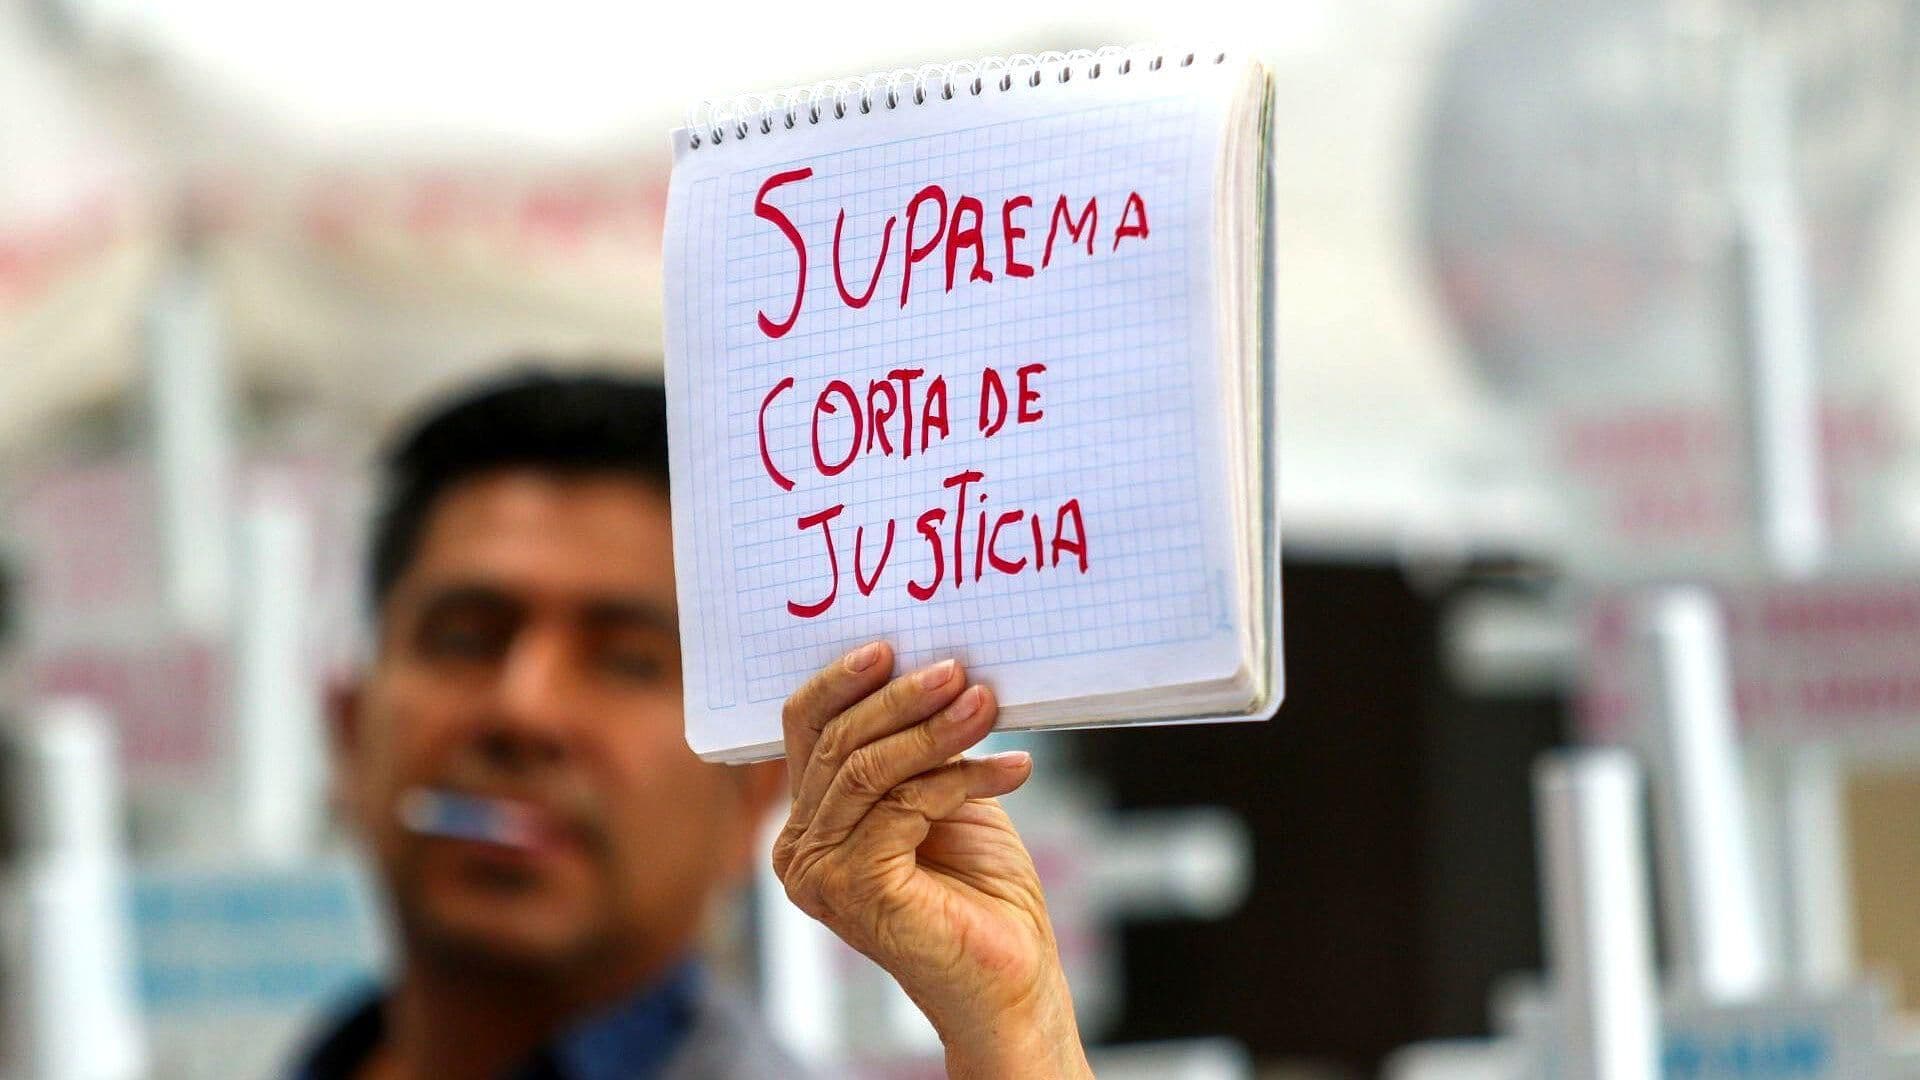 SUPREMA
CORTA DE
JUSTICIA